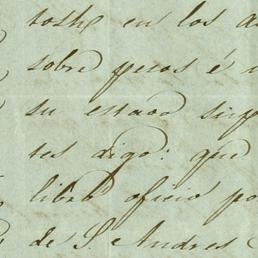 tosh en los a
sobre pesos é
su estado
tes digo: que
libró oficio po
de S. Andres